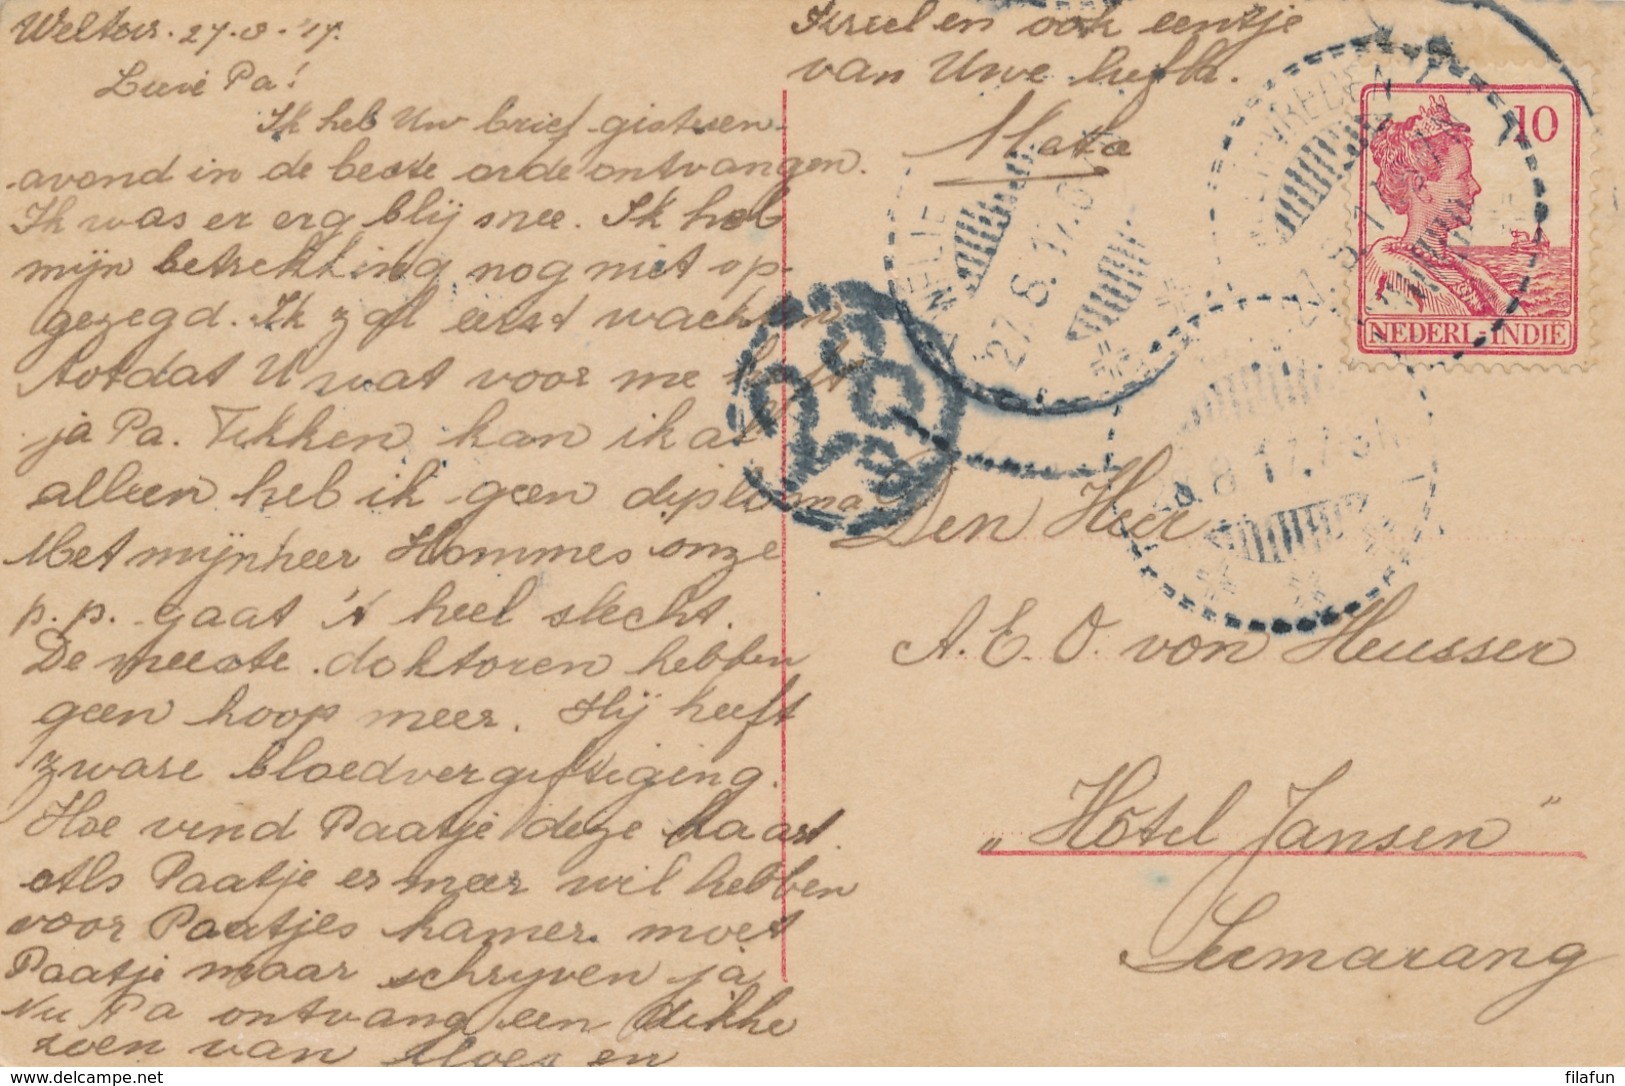 Weltevr. 27.8.'17.
Lieve Pa!
Ik heb Uw brief gisteren-
avond in de beste orde ontvangen.
Ik was er erg blij mee. Ik heb
mijn betrekking nog niet op-
gezegd. Ik zal eerst wachten
totdat U wat voor me heeft
ja Pa. Tikken kan ik al
alleen heb ik geen diploma
Met mijnheer Hommes onze
p.p. gaat 't heel slecht.
De meeste doktoren hebben
geen hoop meer. Hij heeft
zware bloedvergiftiging.
Hoe vind Paatje deze kaart.
Als Paatje er meer wil hebben
voor Paatjes kamer moet
Paatje maar schrijven ja
Nu Pa ontvang een dikke
zoen van Moes en
en ook eentje
van Uwe liefh.
10
NEDERL-INDIË
27.8.17.
28
Den Heer
A. E. O. von Heusser
„Hôtel Jansen"
Semarang
8.17.
filafun
www.delcampe.net